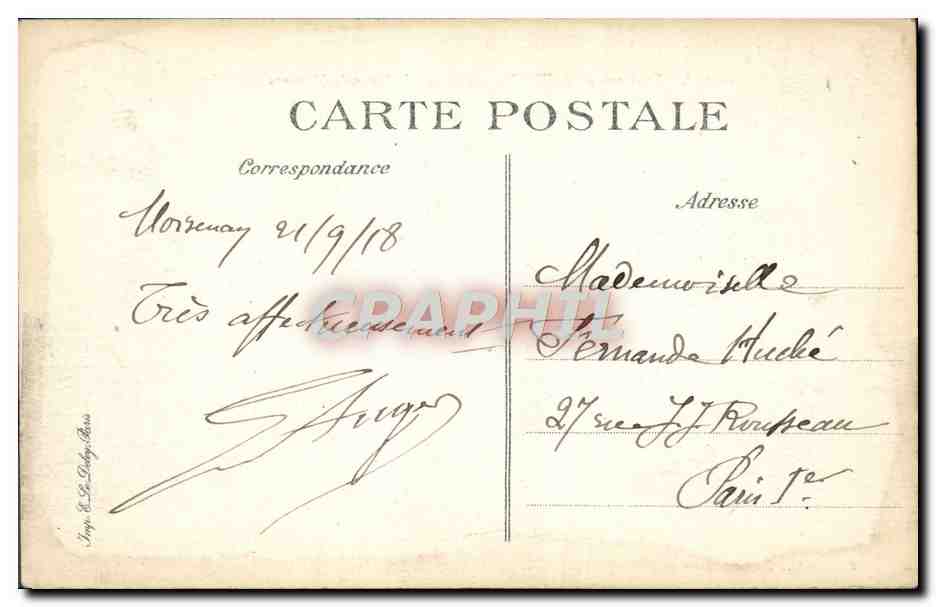 CARTE POSTALE
Correspondance
Moisenay 21/9/18
Très affectueusement
Auger
Imp. E. Le Deley, Paris
Adresse
Mademoiselle
Fernande Huché
27 rue J J Rousseau
Paris 1er
CPAPHIL